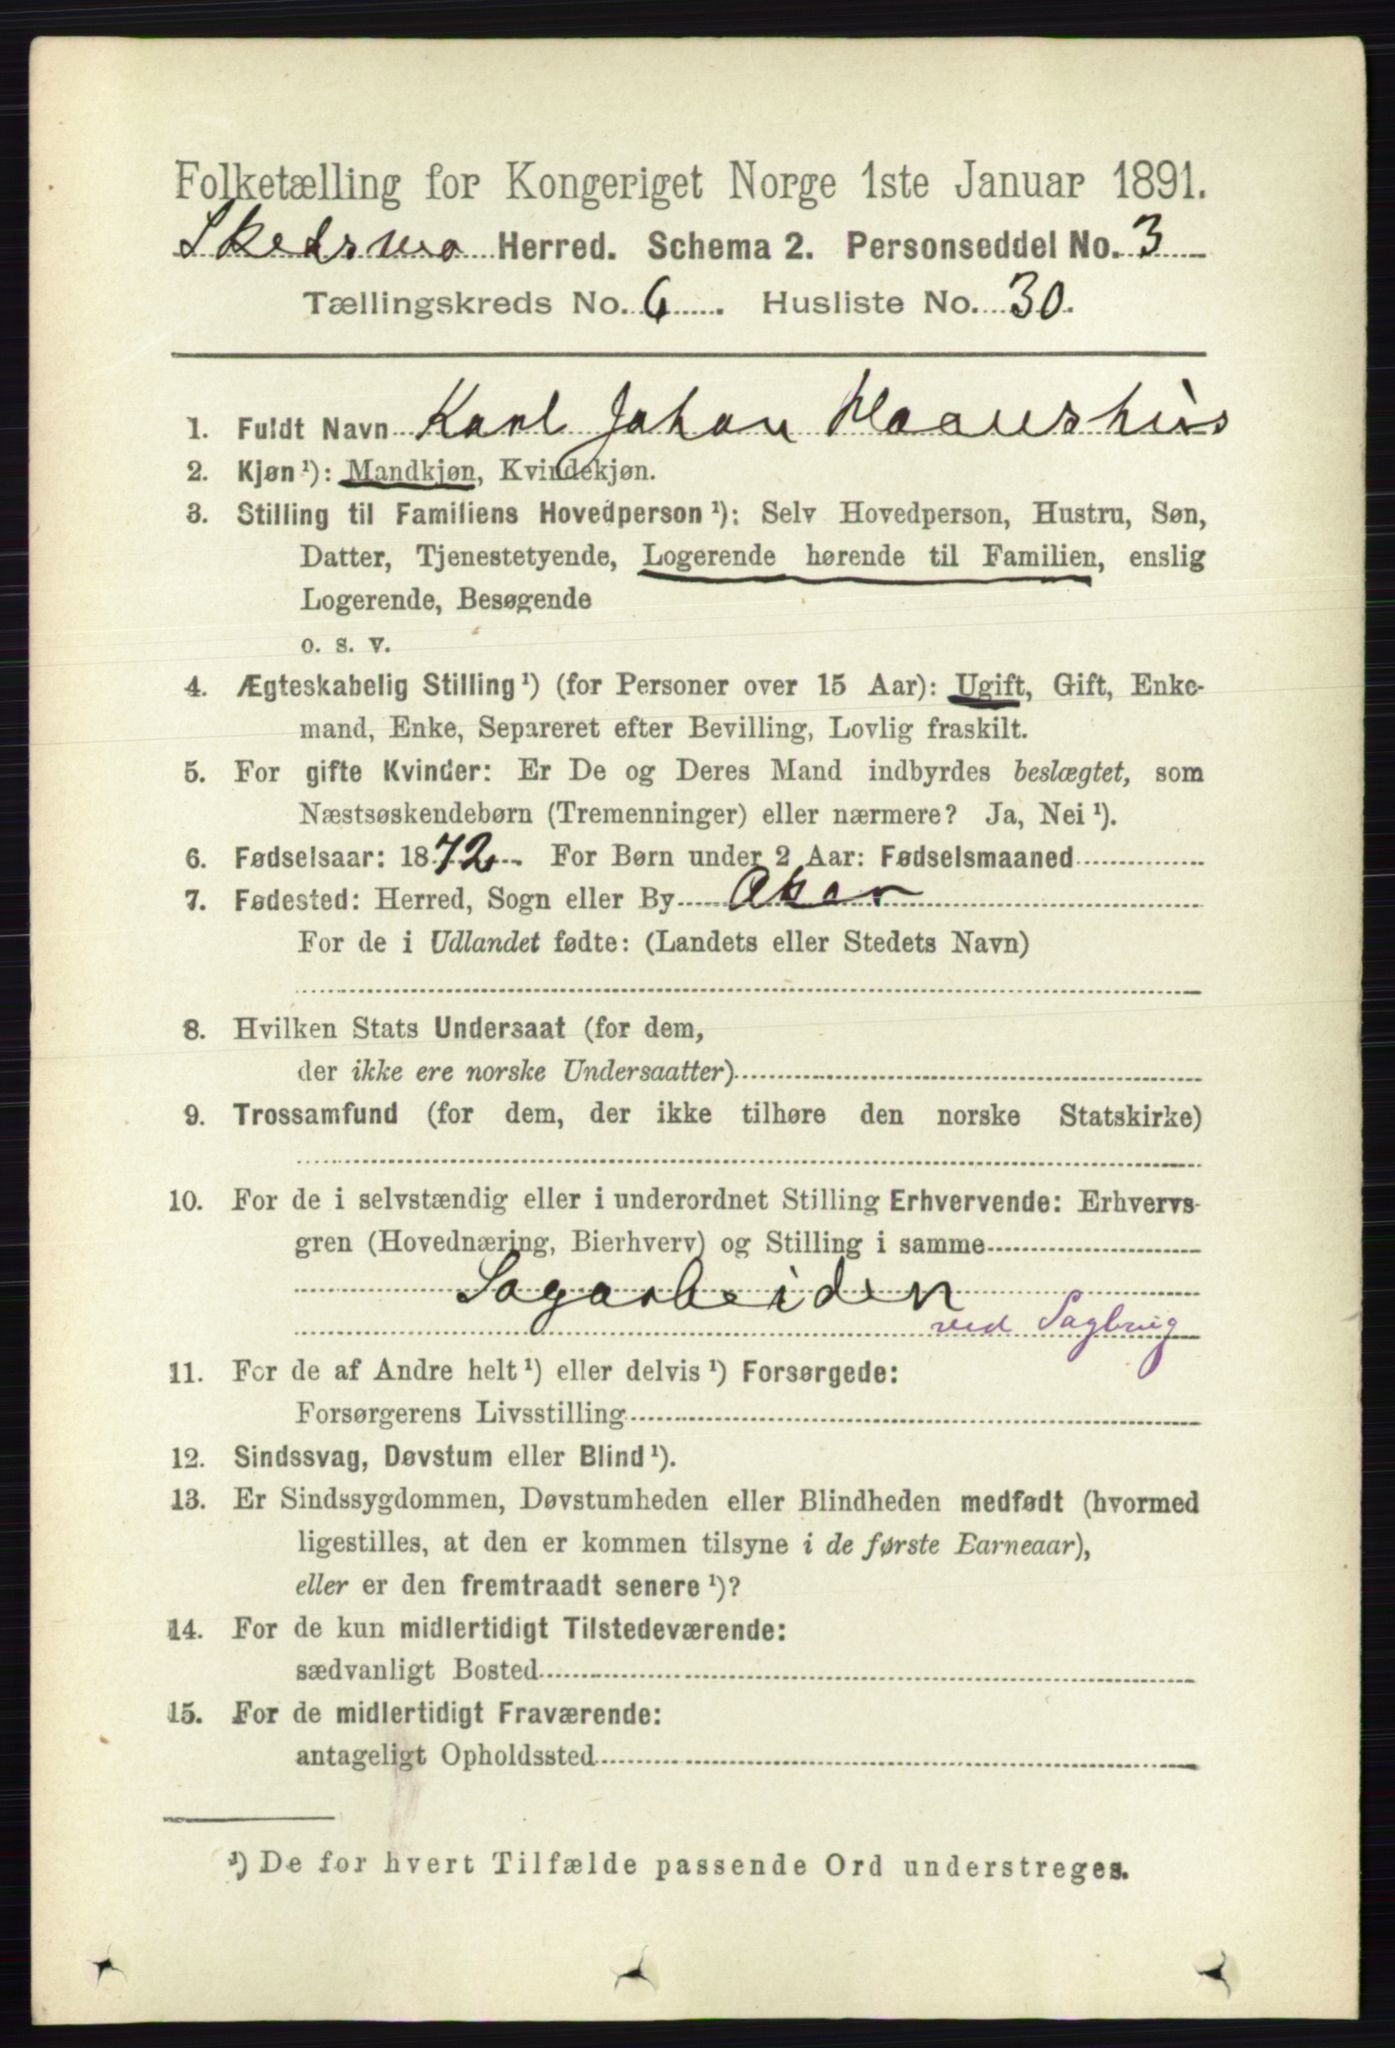 Folketælling for Kongeriget Norge 1ste Januar 1891.
Skedsmo Herred. Schema 2. Personseddel No. 3
Tællingskreds No. 6. Husliste No. 30.
1. Fuldt Navn Karl Johan
2. Kjøn ¹): Mandkjøn, Kvindekjøn.
3. Stilling til Familiens Hovedperson ¹): Selv Hovedperson, Hustru, Søn,
Datter, Tjenestetyende, Logerende hørende til Familien, enslig
Logerende, Besøgende
o. s. v.
4. Ægteskabelig Stilling ¹) (for Personer over 15 Aar): Ugift, Gift, Enke-
mand, Enke, Separeret efter Bevilling, Lovlig fraskilt.
5. For gifte Kvinder: Er De og Deres Mand indbyrdes beslægtet, som
Næstsøskendebørn (Tremenninger) eller nærmere? Ja, Nei ¹).
6. Fødselsaar: 1872 For Børn under 2 Aar: Fødselsmaaned
7. Fødested: Herred, Sogn eller By Aker
For de i Udlandet fødte: (Landets eller Stedets Navn)
8. Hvilken Stats Undersaat (for dem,
der ikke ere norske Undersaatter)
9. Trossamfund (for dem, der ikke tilhøre den norske Statskirke)
10. For de i selvstændig eller i underordnet Stilling Erhvervende: Erhvervs-
gren (Hovednæring, Bierhverv) og Stilling i samme
Sagarbeider
ved Sagbrug
11. For de af Andre helt ¹) eller delvis ¹) Forsørgede:
Forsørgerens Livsstilling
12. Sindssvag, Døvstum eller Blind ¹).
13. Er Sindssygdommen, Døvstumheden eller Blindheden medfødt (hvormed
ligestilles, at den er kommen tilsyne i de første Barneaar),
eller er den fremtraadt senere ¹)?
14. For de kun midlertidigt Tilstedeværende:
sædvanligt Bosted
15. For de midlertidigt Fraværende:
antageligt Opholdssted
¹) De for hvert Tilfælde passende Ord understreges.